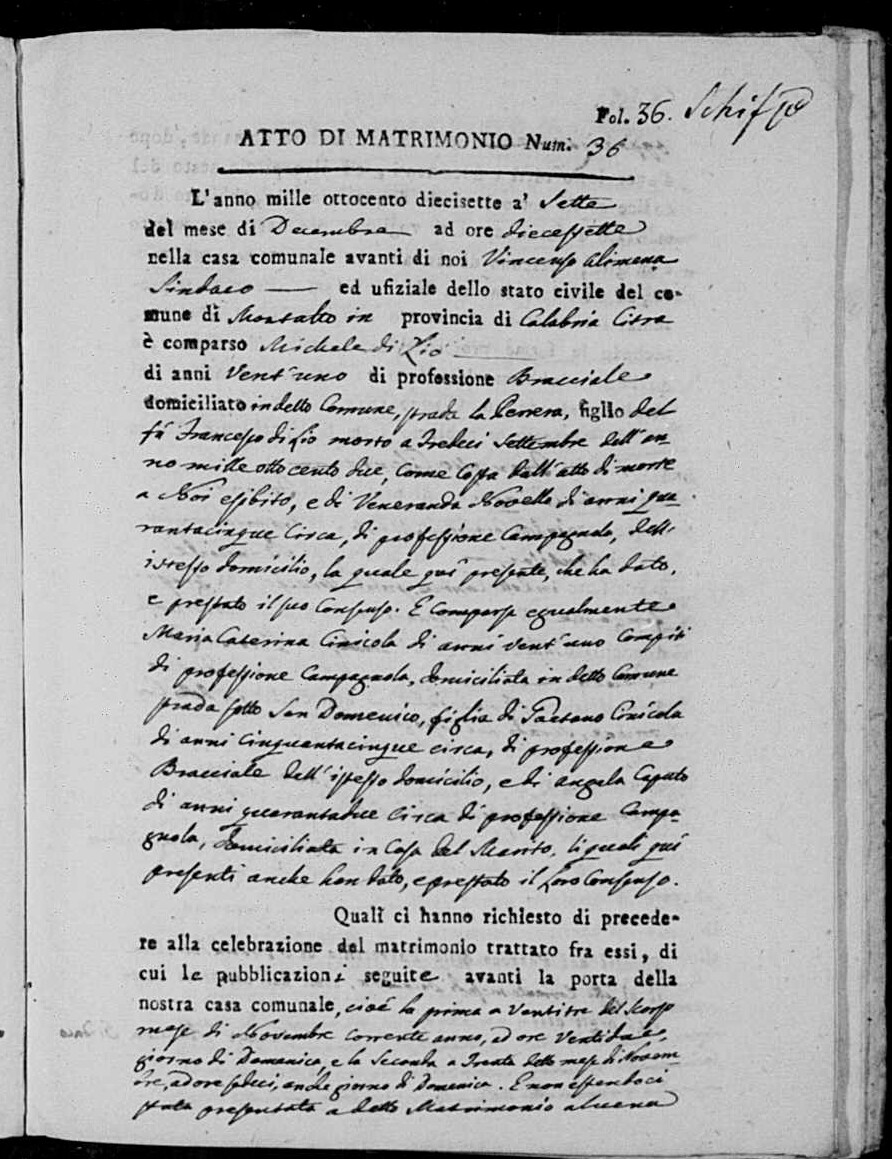 Fol. 36. Schif
ATTO DI MATRIMONIO Num. 36
L'anno mille ottocento diecisette a' Sette
del mese di Decembre ad ore diecessette
nella casa comunale avanti di noi Vincenso Alimena
Sindaco — ed ufiziale dello stato civile del co-
mune di Montalto in provincia di Calabria Citra
è comparso Michele di Lio
di anni Vent'uno di professione Bracciale
domiciliato in detto Comune, strada la Perrera, figlio del
fù Francesco di Lio morto a Tredeci Settembre dell'an-
no mille ottocento due, come costa dall'atto di morte
a Noi esibito, e di Veneranda Novello di anni qua-
rantacinque circa, di professione Campagnola, dell'
istesso domicilio, la quale quì presente, che ha dato,
e prestato il suo Consenso. E comparsa egualmente
Maria Caterina Cinicola di anni vent'uno compiti
di professione Campagnola, domiciliata in detto Comune
strada sotto San Domenico, figlia di Gaetano Cinicola
di anni cinquantacinque circa, di professione
Bracciale dell'istesso domicilio, e di Angela Caputo
di anni quarantadue circa di professione Campa-
gnola, domiciliata in Casa del Marito, li quali quì
presenti anche han dato, e prestato il loro Consenso.
Quali ci hanno richiesto di precede-
re alla celebrazione del matrimonio trattato fra essi, di
cui le pubblicazioni seguite avanti la porta della
nostra casa comunale, cioè la prima a Ventitre del scorso
mese di Novembre corrente anno, ad ore Ventidue,
giorno di Domenica, e la Seconda a Trenta detto mese di Novem-
bre, ad ore sedeci, anche giorno di Domenica. E non essendoci
stata presentata a detto Matrimonio alcuna